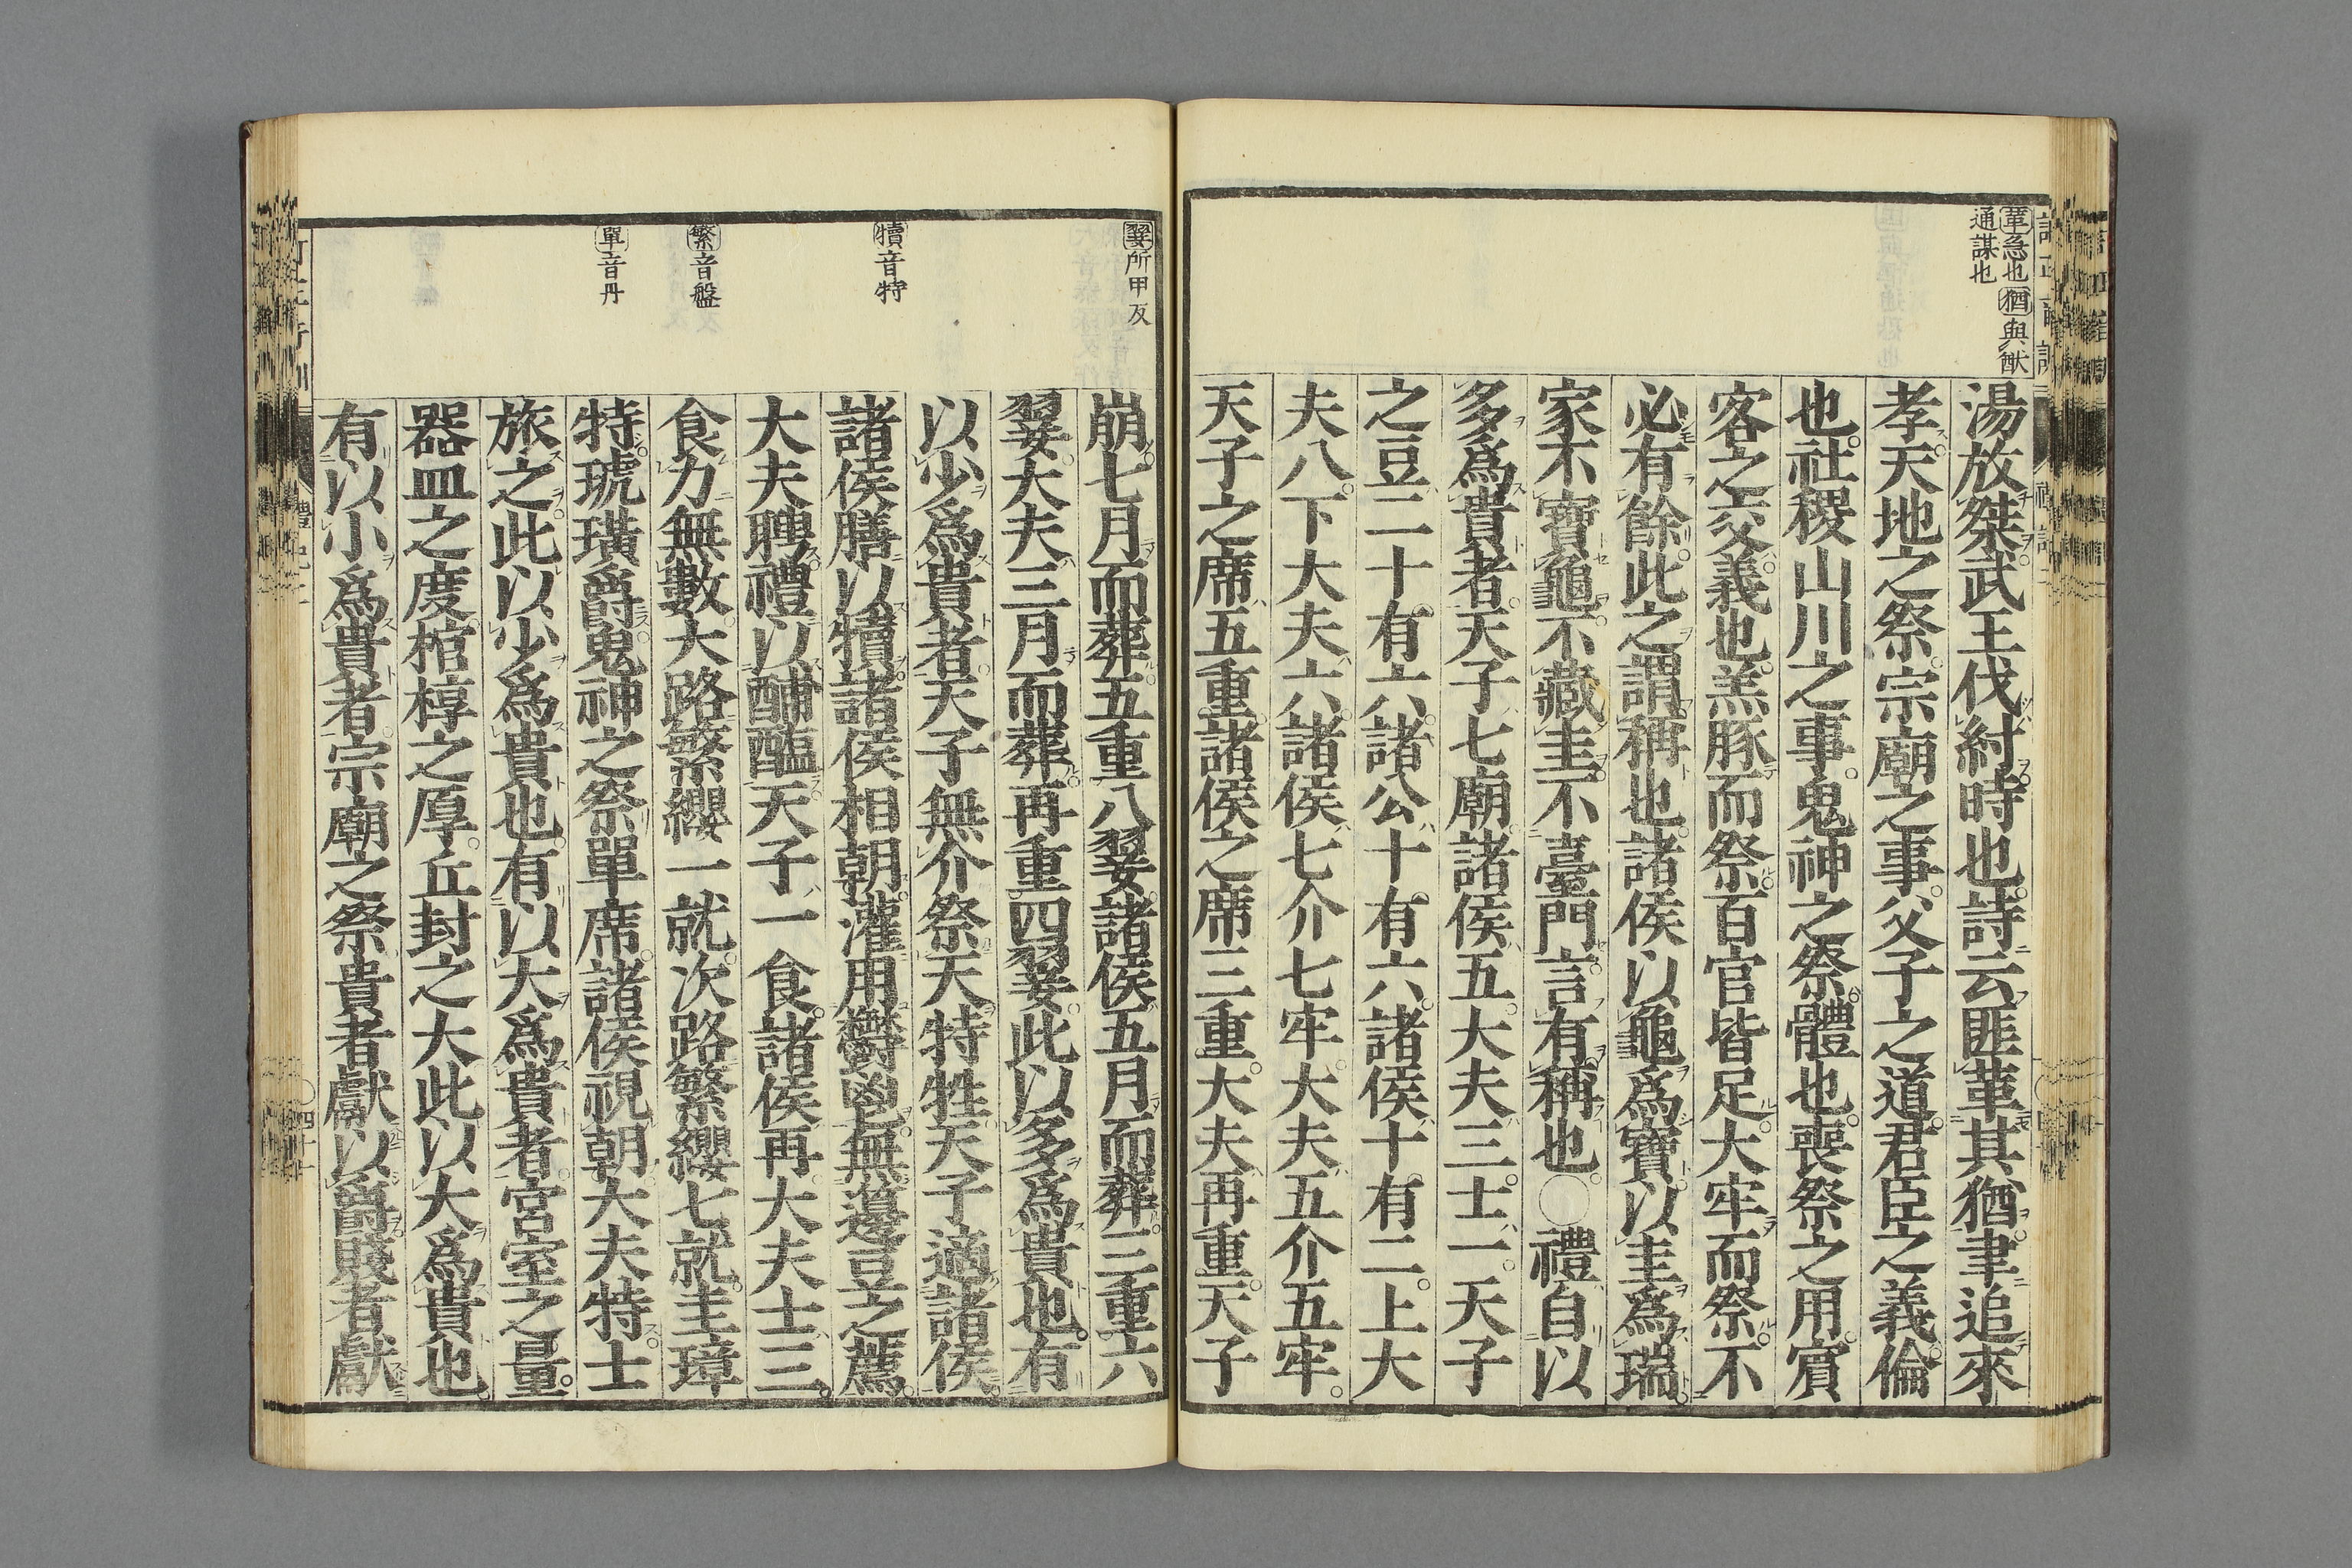 革急也猶與猷
通謀也
湯放桀武王伐紂時也詩云匪革其猶聿追來
孝天地之祭宗廟之事父子之道君臣之義倫
也社稷山川之事鬼神之祭體也喪祭之用賓
客之交義也羔豚而祭百官皆足大牢而祭不
必有餘此之謂稱也諸侯以龜爲寶以圭爲瑞
家不寶龜不藏圭不臺門言有稱也○禮自以
多爲貴者天子七廟諸侯五大夫三士一天子
之豆二十有六諸公十有六諸侯十有二上大
夫八下大夫六諸侯七介七牢大夫五介五牢
天子之席五重諸侯之席三重大夫再重天子
翣所甲反
犢音特
繁音盤
單音丹
崩七月而葬五重八翣諸侯五月而葬三重六
翣大夫三月而葬再重四翣此以多爲貴也有
以少爲貴者天子無介祭天特牲天子適諸侯
諸侯膳以犢諸侯相朝灌用鬱鬯無籩豆之薦
大夫聘禮以脯醢天子一食諸侯再大夫士三
食力無數大路繁纓一就次路繁纓七就圭璋
特琥璜爵鬼神之祭單席諸侯視朝大夫特士
旅之此以少爲貴也有以大爲貴者宮室之量
器皿之度棺椁之厚丘封之大此以大爲貴也
有以小爲貴者宗廟之祭貴者獻以爵賤者獻